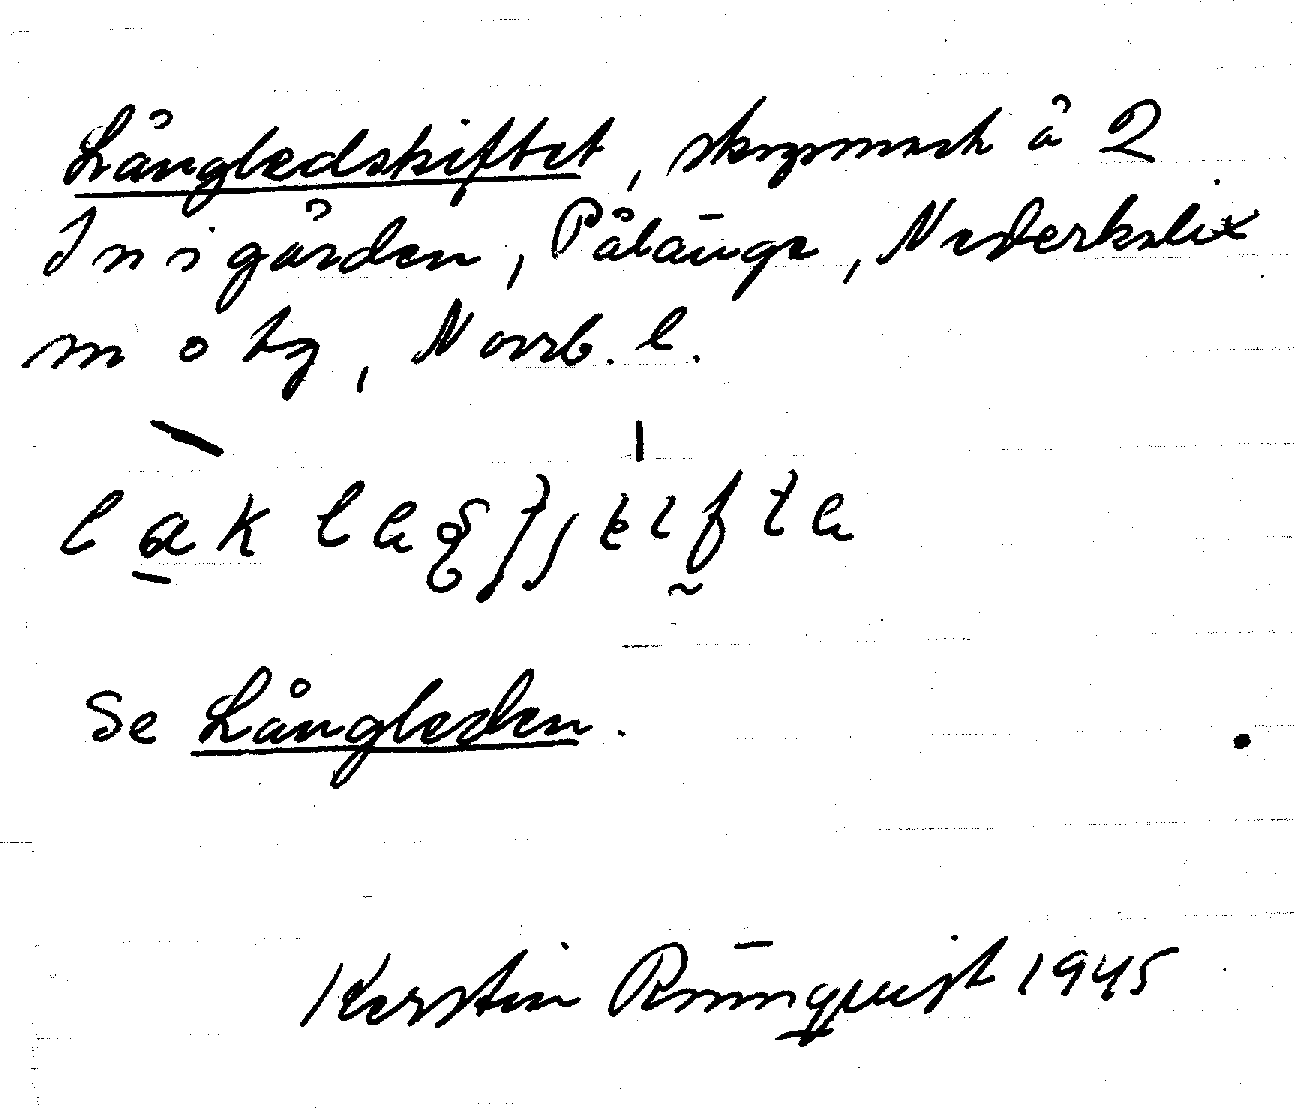 Långledskiftet, skogsmark å 2
Inigården, Pålänge, Nederkalix
m o tg, Norrb. l.
Se Långleden.
Kerstin Rönnquist 1945